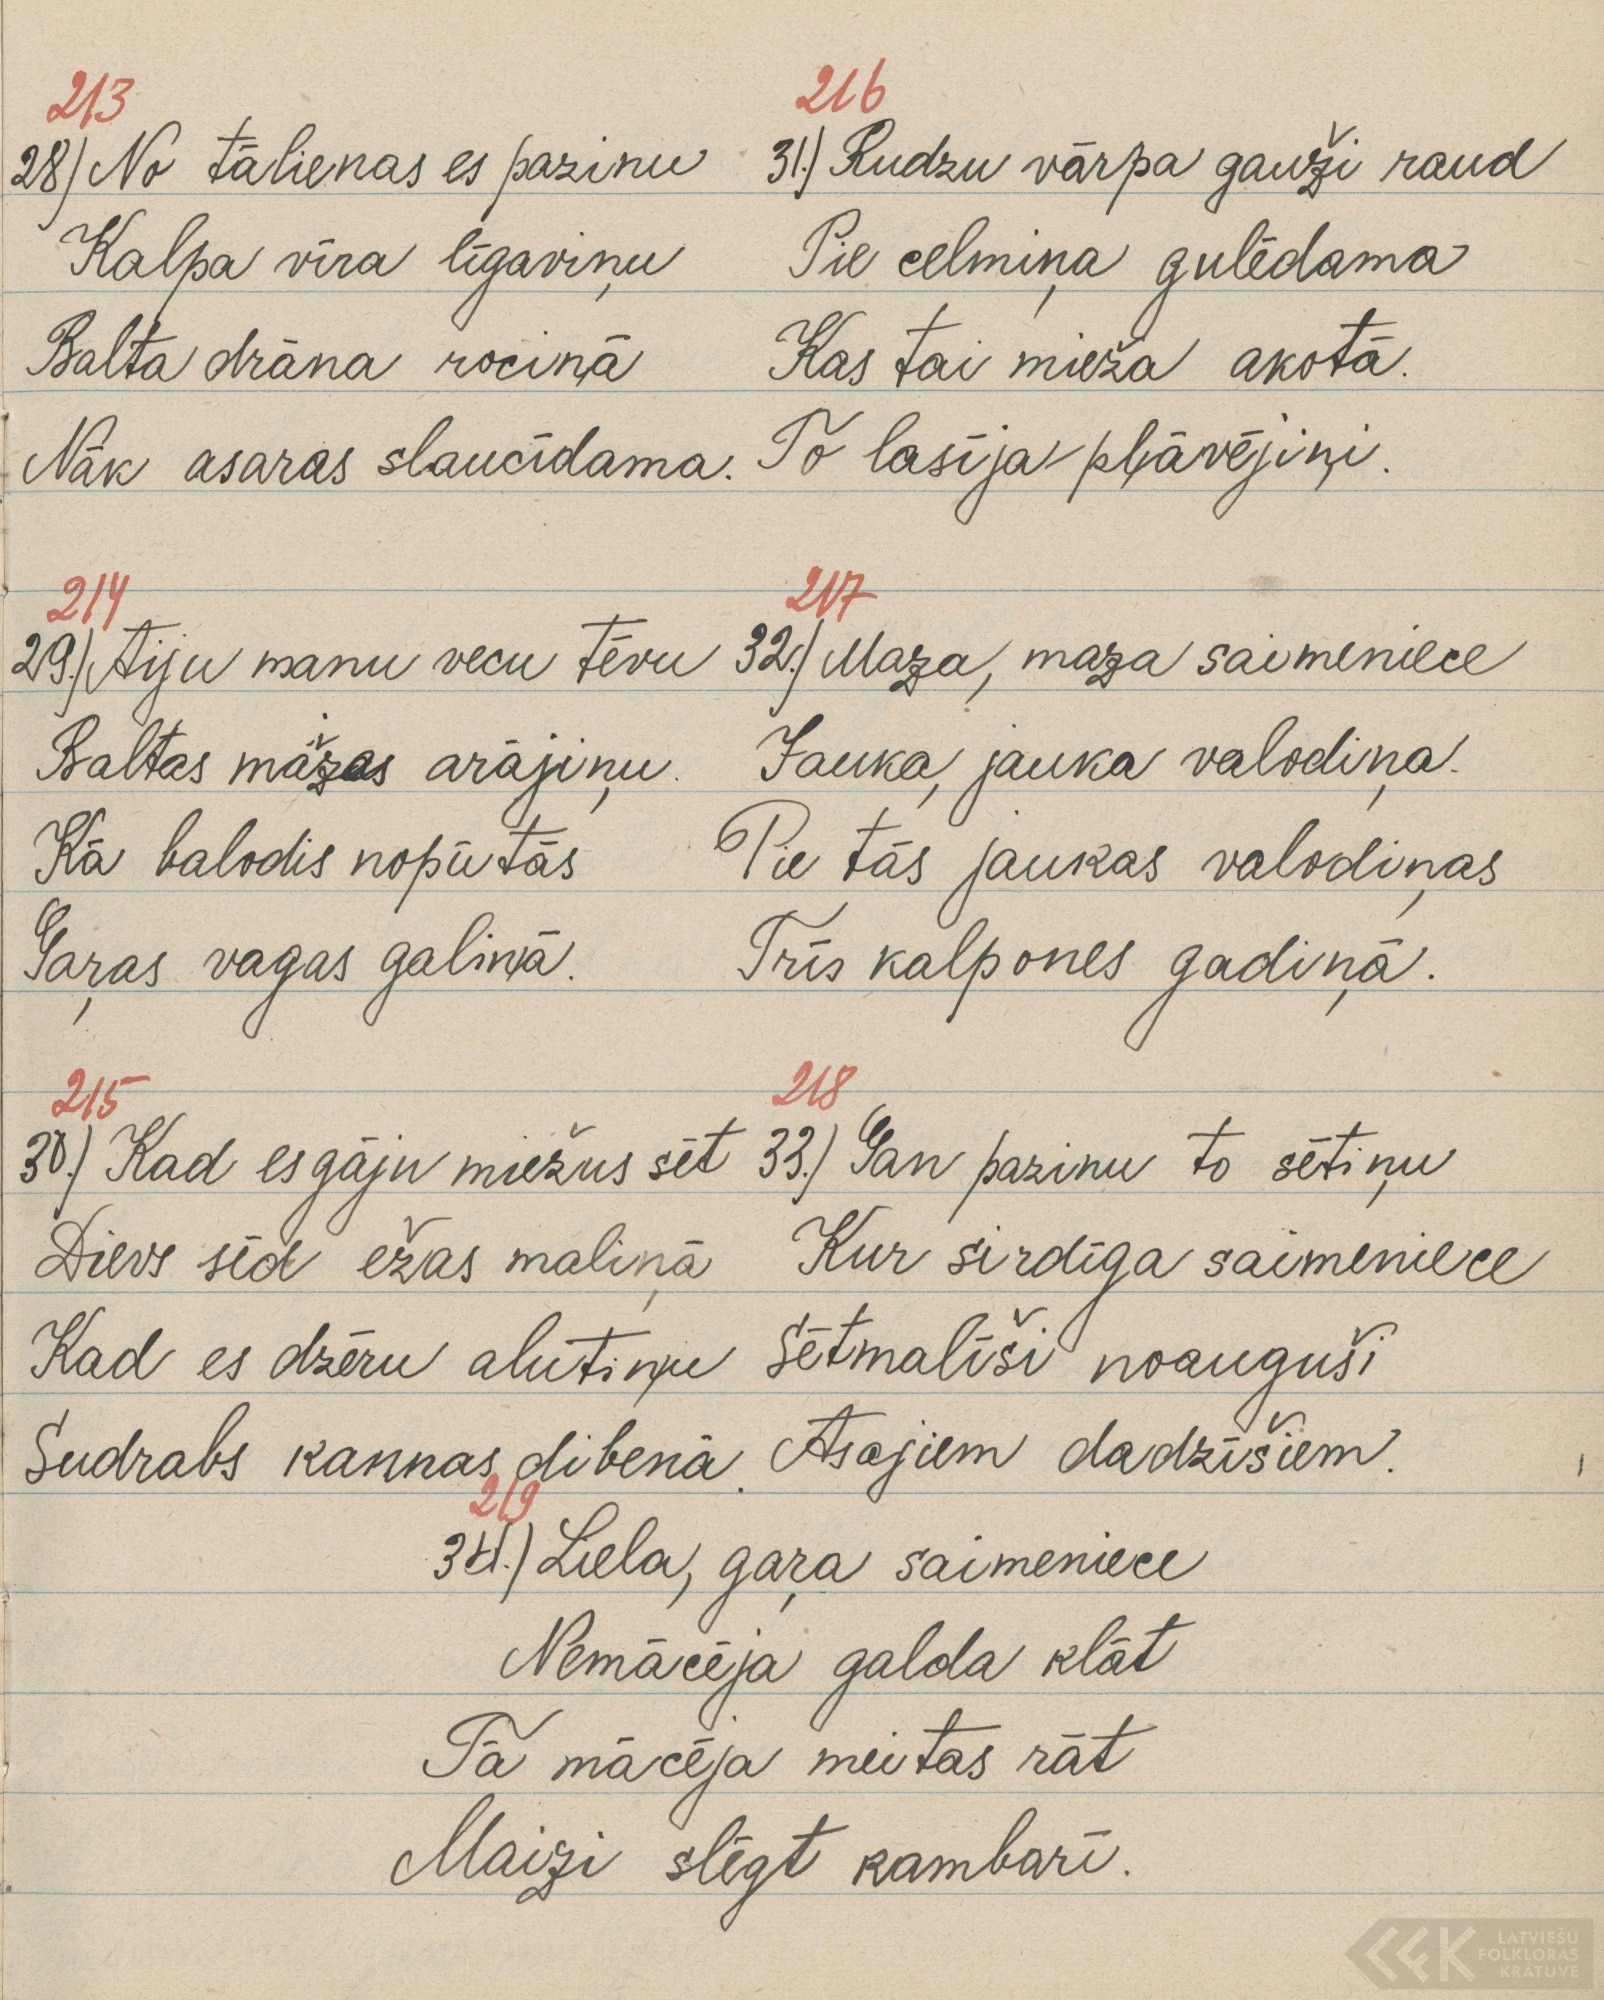 213
28.) No tālienas es pazinu
Kalpa vīra līgaviņu
Balta drāna rociņā
Nāk asaras slaucīdama.
214
29.) Aiju manu vecu tēvu
Baltas arājiņu.
Kā balodis nopūtās
Gaŗas vagas galiņā.
215
30.) Kad es gāju miežus sēt
Dievs sēd ežas maliņā
Kad es dzēru alutiņu
Sudrabs kannas dibenā.
216
31.) Rudzu vārpa gauži raud
Pie celmiņa gulēdama
Kas tai mieža akotā.
To lasīja pļāvējiņi.
217
32.) Maza, maza saimeniece
Jauka, jauka valodiņa.
Pie tās jaukas valodiņas
Trīs kalpones gadiņā.
218
33.) Gan pazinu to sētiņu
Kur sirdīga saimeniece
Sētmalīši noauguši
Asajiem dadzīšiem.
219
34.) Liela, gaŗa saimeniece
Nemācēja galda klāt
Tā mācēja meitas rāt
Maizi slēgt kambarī.
LATVIEŠU
FOLKLORAS
KRĀTUVE